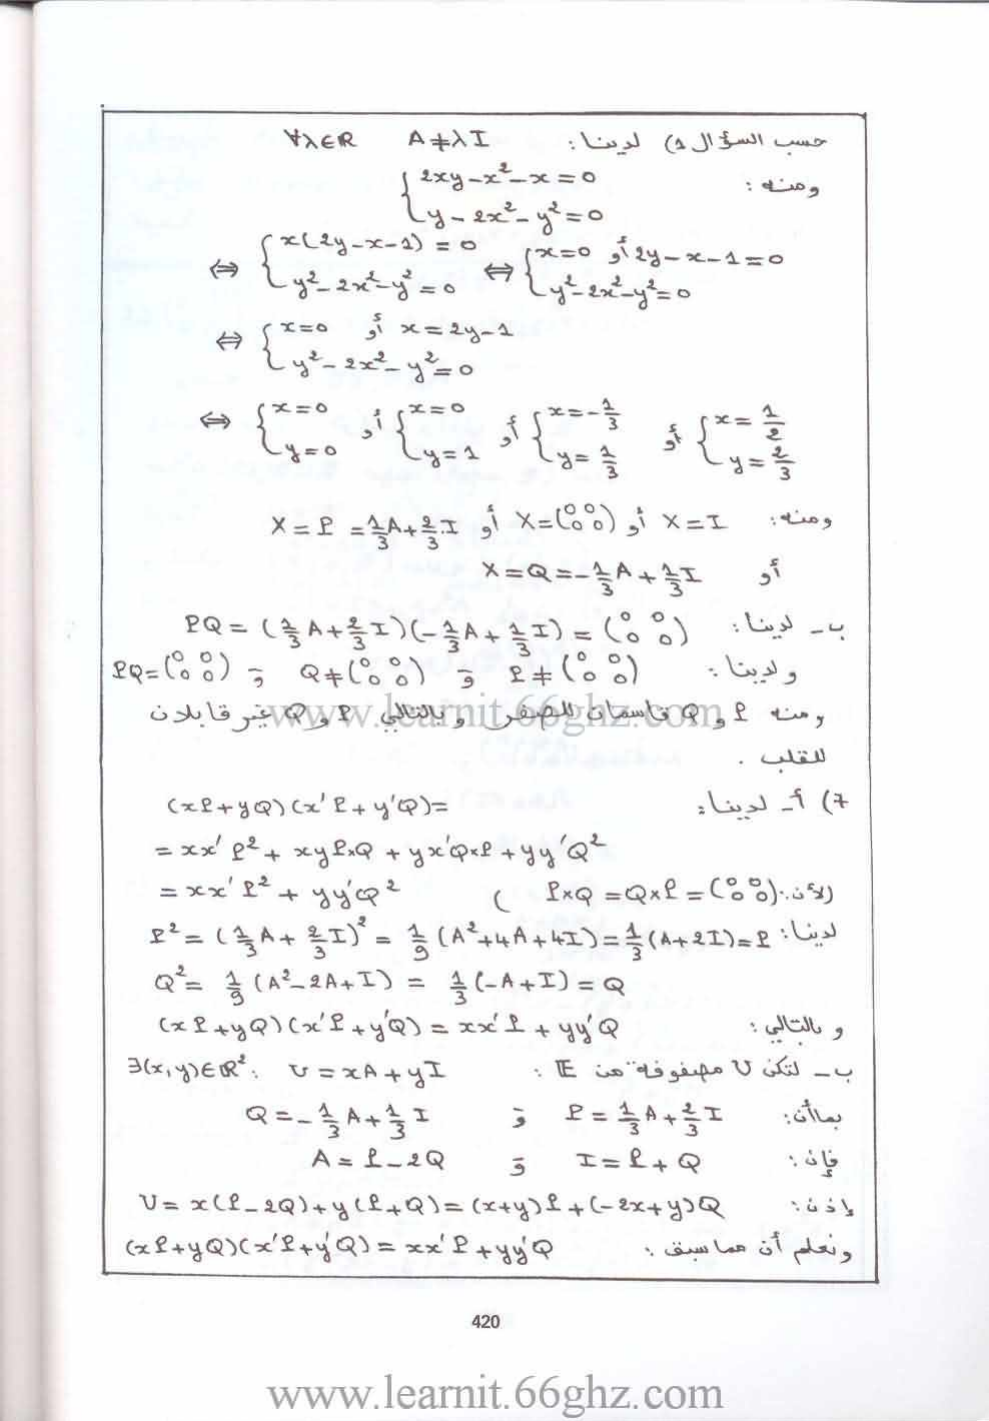 حسب السؤال 1) لدينا: ∀λ∈ℝ A≠λI
ومنه: { 2xy-x²-x=0
{ y-2x²-y²=0
⇔ { x(2y-x-1)=0 ⇔ { x=0 أو 2y-x-1=0
{ y²-2x²-y²=0 { y²-2x²-y²=0
⇔ { x=0 أو x=2y-1
{ y²-2x²-y²=0
⇔ { x=0 أو { x=0 أو { x=-1/3 أو { x=1/2
{ y=0 { y=1 { y=1/3 { y=2/3
ومنه: X=I أو X=(0 0 / 0 0) أو X=P=1/3A+2/3.I
أو X=Q=-1/3A+1/3I
ب- لدينا: PQ=(1/3A+2/3I)(-1/3A+1/3I)=(0 0 / 0 0)
ولدينا: P≠(0 0 / 0 0) و Q≠(0 0 / 0 0) و PQ=(0 0 / 0 0)
ومنه P و Q قاسمان للصفر وبالتالي P و Q غير قابلان
www.learnit.66ghz.com
للقلب.
7) أ- لدينا: (xP+yQ)(x'P+y'Q)=
=xx'P²+xyP×Q+yx'Q×P+yy'Q²
=xx'P²+yy'Q² (لأن: P×Q=Q×P=(0 0 / 0 0))
لدينا: P²=(1/3A+2/3I)²=1/9(A²+4A+4I)=1/3(A+2I)=P
Q²=1/9(A²-2A+I)=1/3(-A+I)=Q
وبالتالي: (xP+yQ)(x'P+y'Q)=xx'P+yy'Q
ب- لتكن U مصفوفة من E: ∃(x,y)∈ℝ²: U=xA+yI
بما أن: P=1/3A+2/3I و Q=-1/3A+1/3I
فإن: I=P+Q و A=P-2Q
إذن: U=x(P-2Q)+y(P+Q)=(x+y)P+(-2x+y)Q
ونعلم أن مما سبق: (xP+yQ)(x'P+y'Q)=xx'P+yy'Q
420
www.learnit.66ghz.com